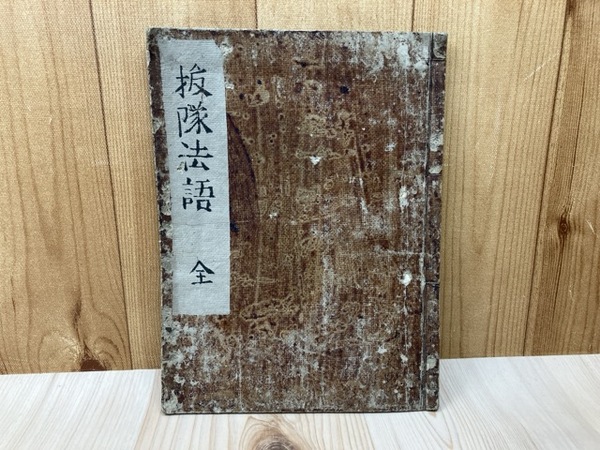 抜隊法語 全